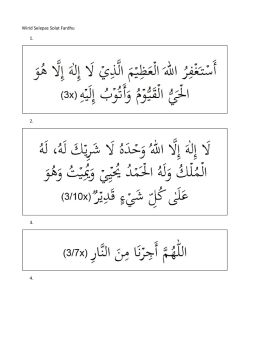 Wirid Selepas Solat Fardhu
1.
أَسْتَغْفِرُ اللهَ الْعَظِيْمَ الَّذِيْ لَا إِلٰهَ إِلَّا هُوَ
الْحَيُّ الْقَيُّوْمُ وَأَتُوْبُ إِلَيْهِ (3x)
2.
لَا إِلٰهَ إِلَّا اللهُ وَحْدَهُ لَا شَرِيْكَ لَهُ، لَهُ
الْمُلْكُ وَلَهُ الْحَمْدُ يُحْيِيْ وَيُمِيْتُ وَهُوَ
عَلَىٰ كُلِّ شَيْءٍ قَدِيْرٌ (3/10x)
3.
اَللّٰهُمَّ أَجِرْنَا مِنَ النَّارِ (3/7x)
4.